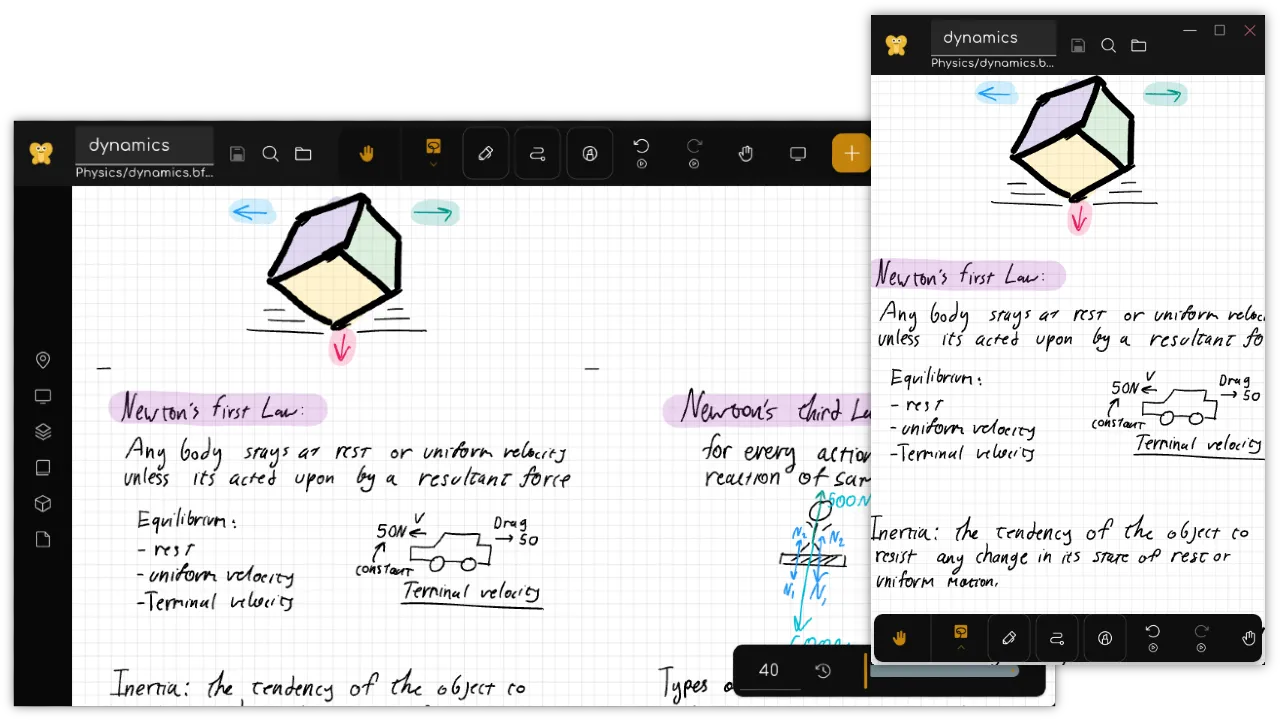 dynamics
Physics/dynamics.bf...
Newton's first Law:
Any body stays at rest or uniform velocity
unless its acted upon by a resultant force
Equilibrium:
- rest
- uniform velocity
- Terminal velocity
V
50N
constant
Drag
50
Terminal velocity
Inertia: the tendency of the object to
Newton's third La
for every action
reaction of sam
500N
N2
N2
N1
N1
Types o
40
dynamics
Physics/dynamics.b...
Newton's first Law:
Any body stays at rest or uniform veloc
unless its acted upon by a resultant fo
Equilibrium:
- rest
- uniform velocity
- Terminal velocity
V
50N
constant
Drag
50
Terminal velocity
Inertia: the tendency of the object to
resist any change in its state of rest or
uniform motion.